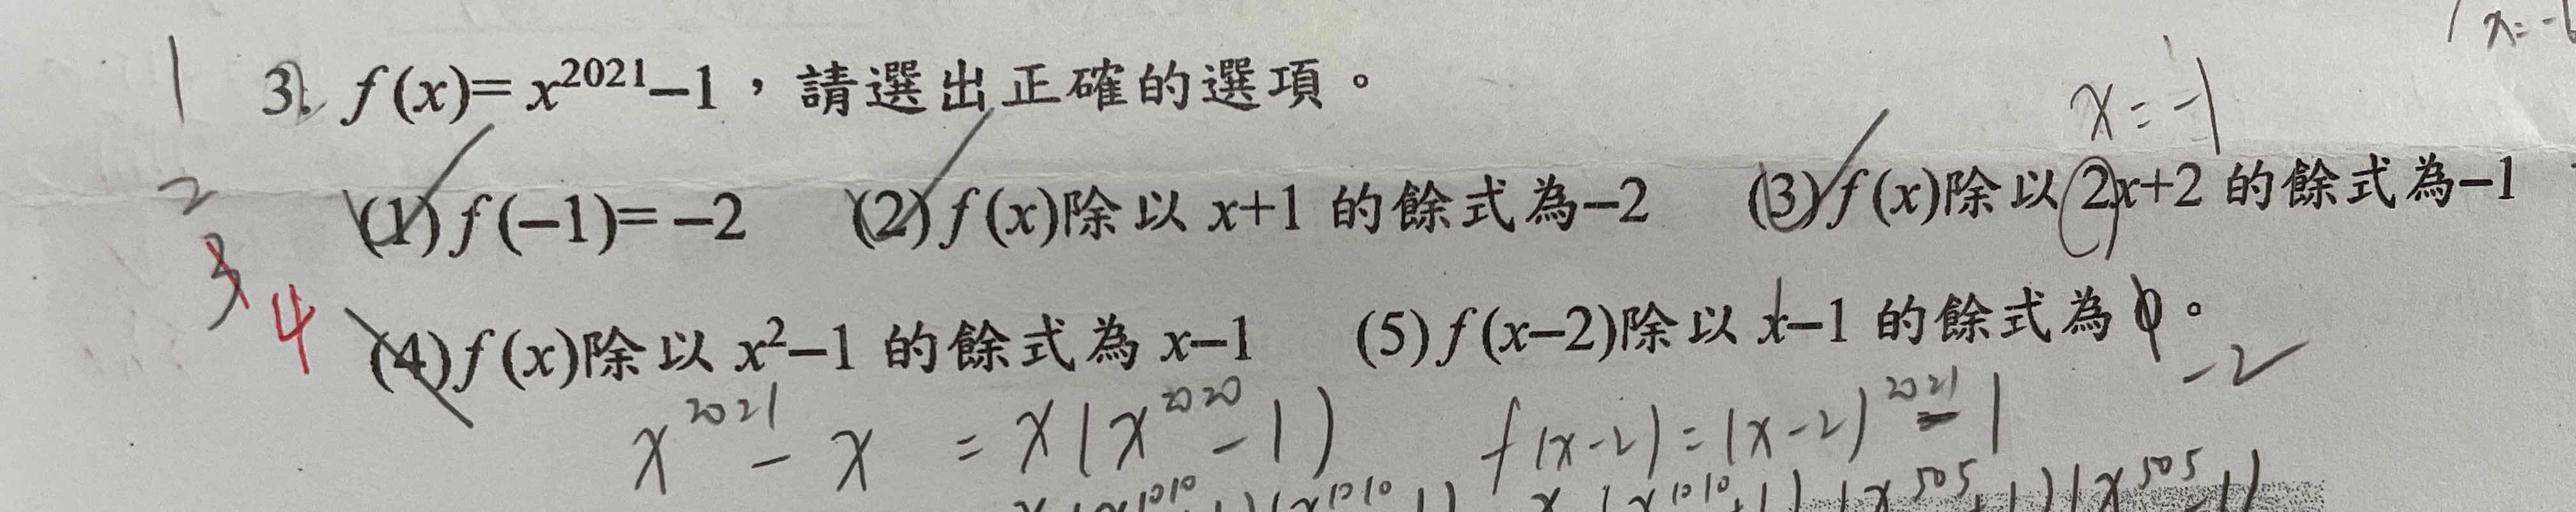 x=-1
1 3. f(x)= x²⁰²¹–1，請選出正確的選項。
x=-1
2 (1) f(–1)= –2 (2) f(x)除以 x+1 的餘式為–2 (3) f(x)除以 2x+2 的餘式為–1
3 4 (4) f(x)除以 x²–1 的餘式為 x–1 (5) f(x–2)除以 x–1 的餘式為 0。
-2
x²⁰²¹ - x = x(x²⁰²⁰ - 1) f(x-2)=(x-2)²⁰²¹ - 1